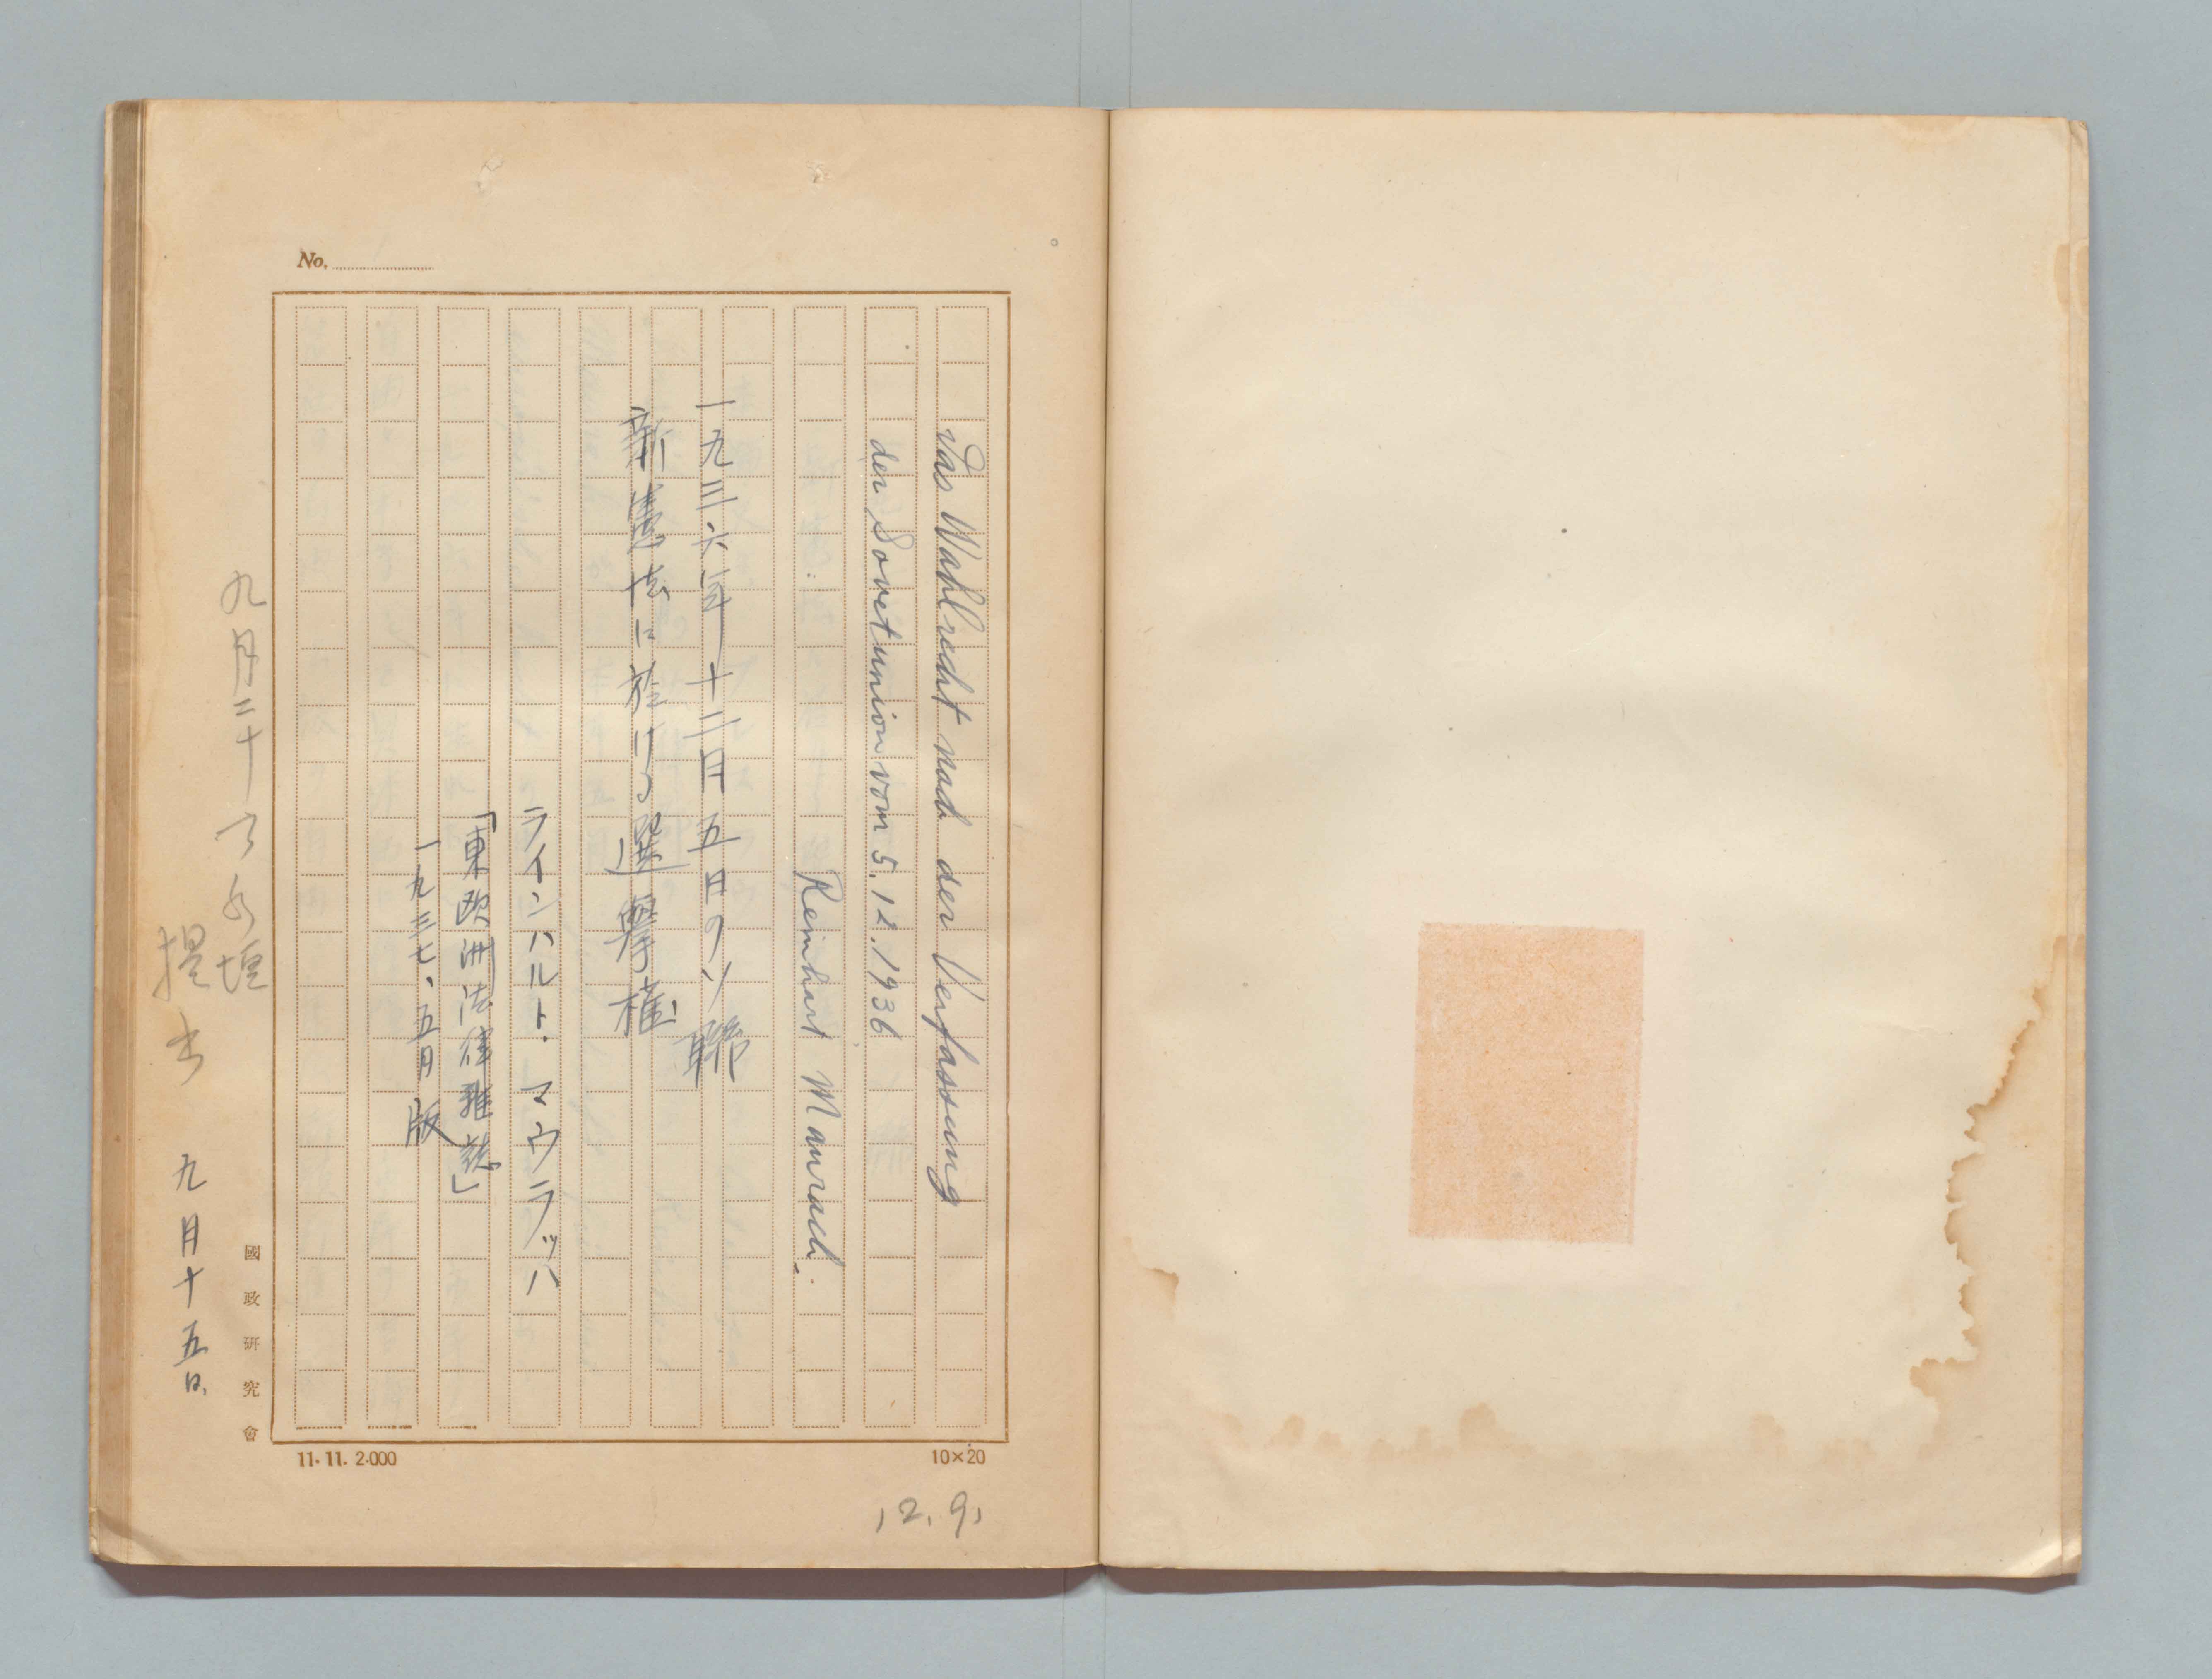 Das Wahlrecht nach der Verfassung
der Sovetunion vom 5.12.1936
Reinhart Maurach.
一九三六年十二月五日のソ聯
新憲法に於ける選擧權
ラインハルト・マウラッハ
「東欧洲法律雜誌」
一九三七、五月版
九月二十
提出
九月十五日
No.
國政研究會
11.11. 2.000
10×20
12.9,